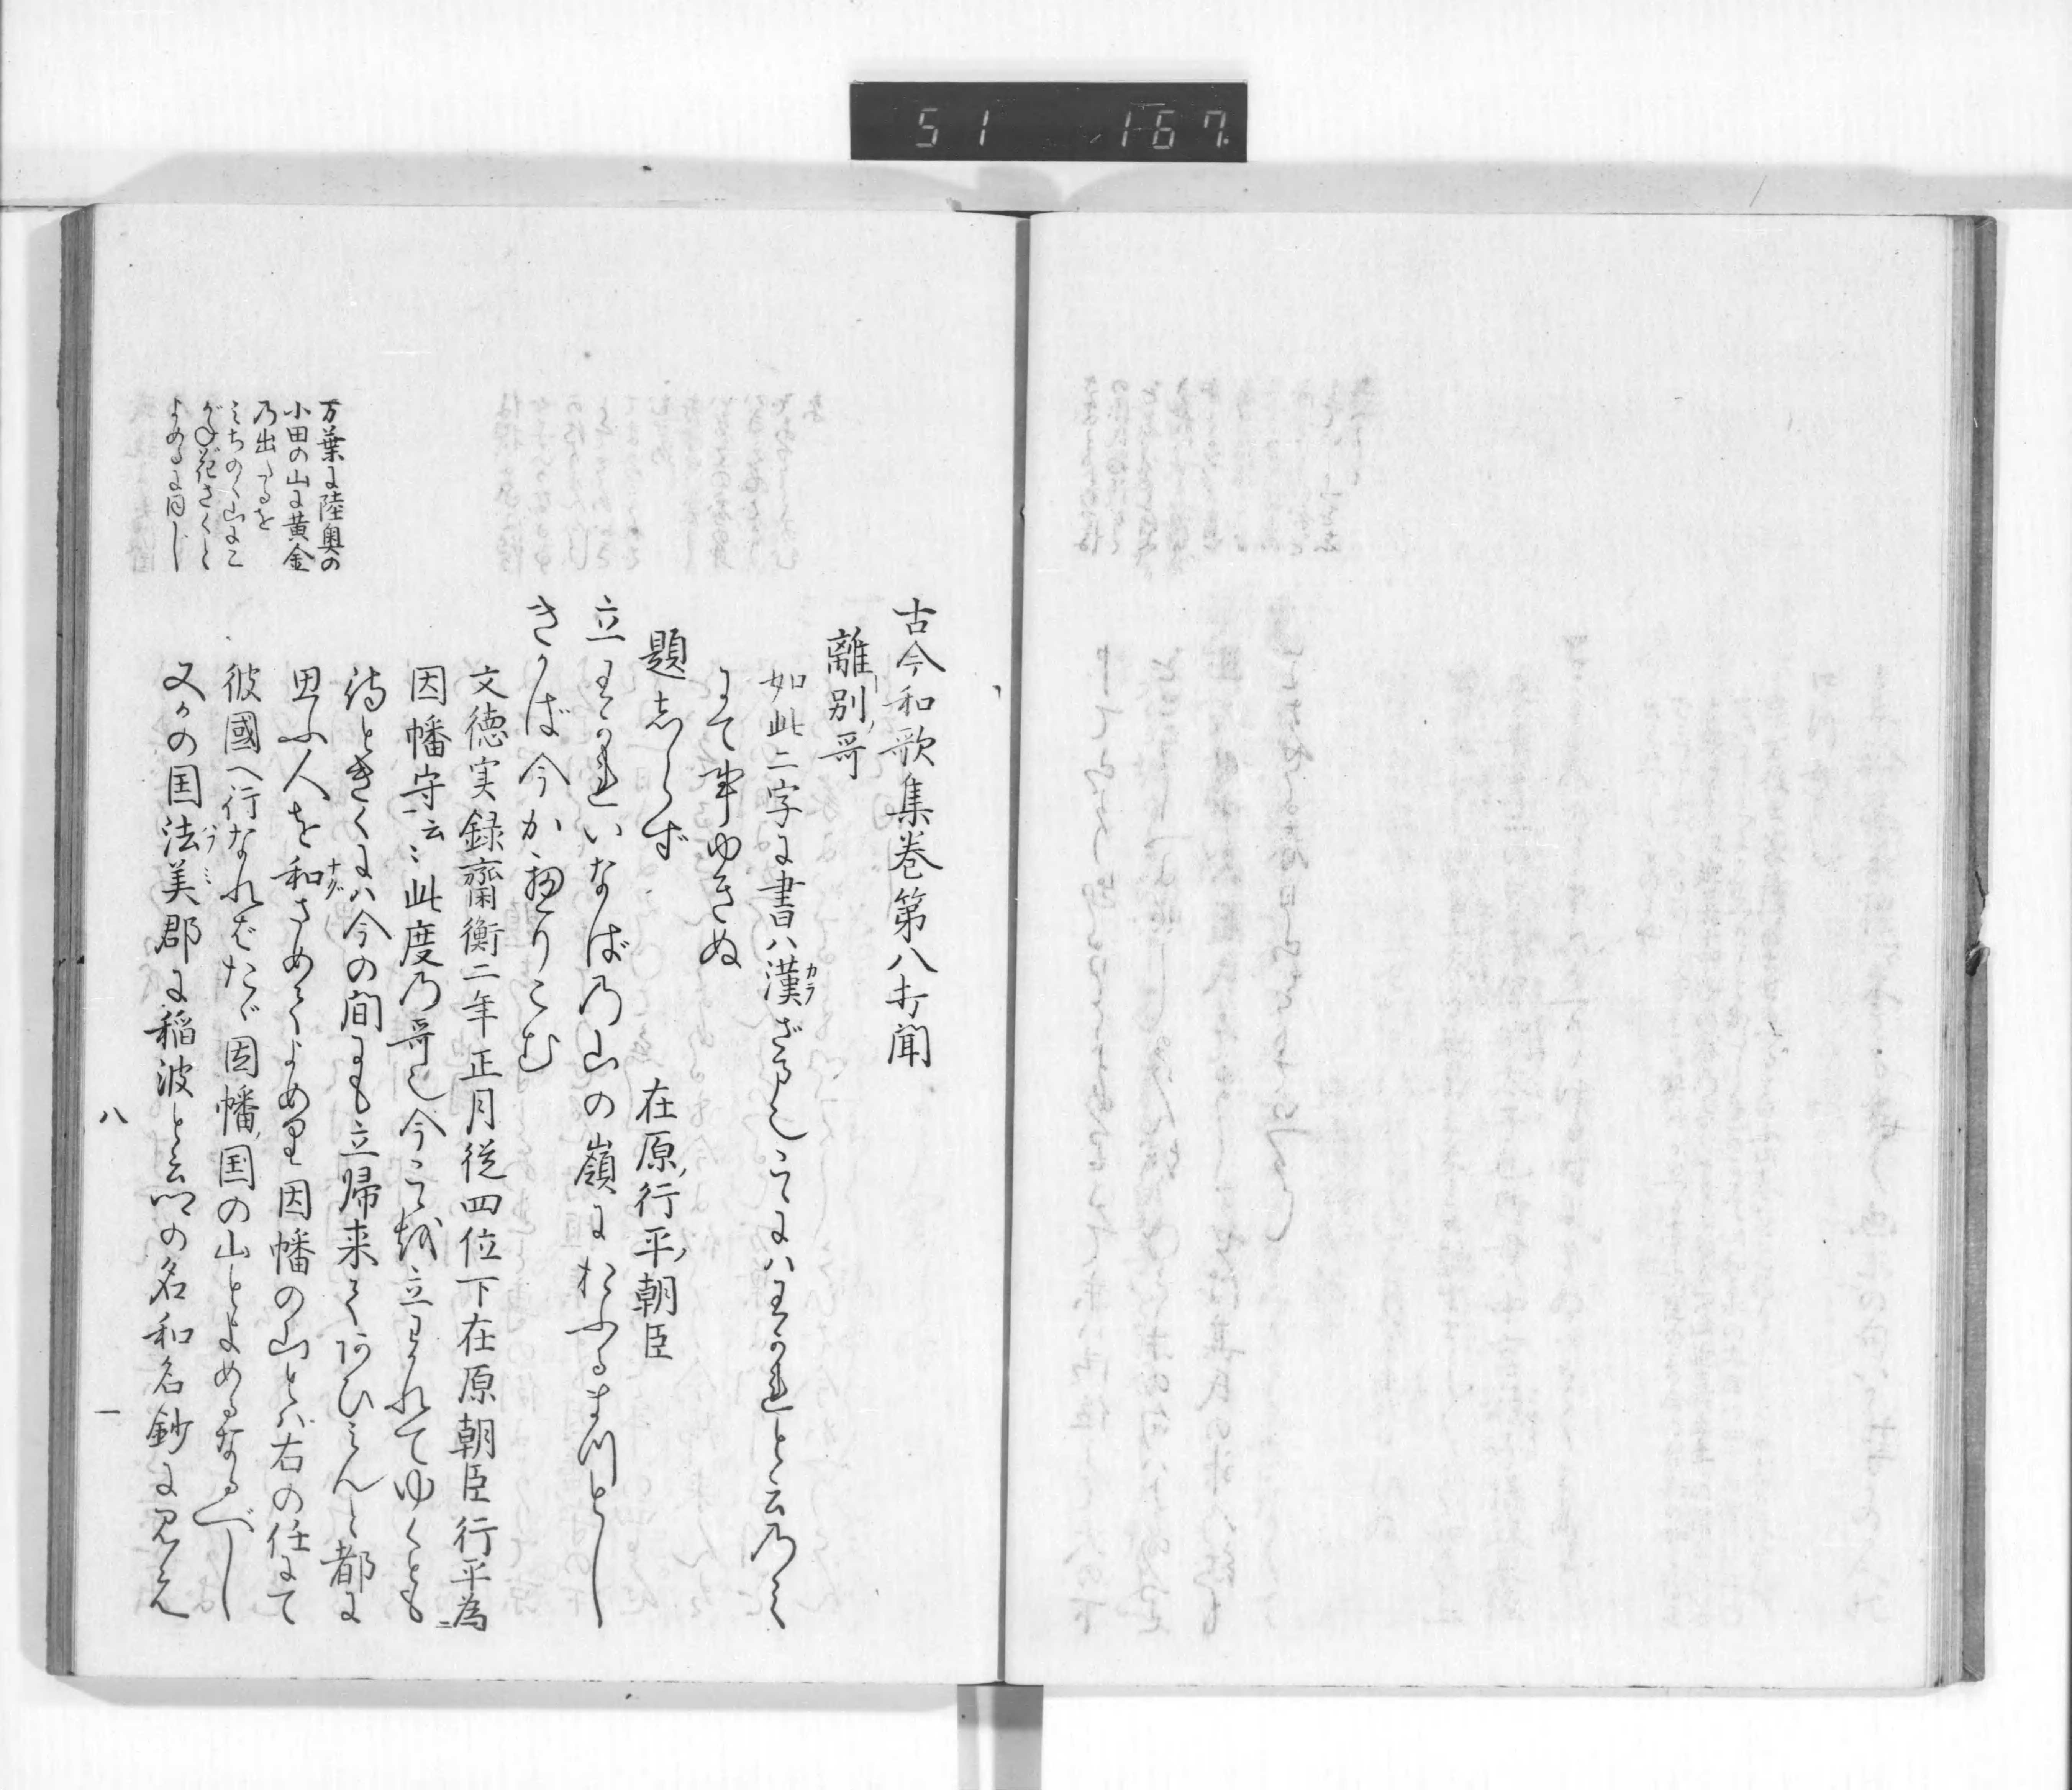 51 167
古今和歌集巻第八打聞
離別哥
如此二字に書ハ漢ざま也こゝにハわかれと云のミ
にて事ゆきぬ
題しらず
在原行平朝臣
立わかれいなばの山の嶺におふるまつとし
きかば今かへりこむ
文徳実録齋衡二年正月従四位下在原朝臣行平為
因幡守云々此度の哥也今こゝを立わかれてゆくとも
待ときくにハ今の間にも立帰来てあひミんと都に
思ふ人を和さめてよめり因幡の山とハ右の任にて
彼國へ行なればたゞ因幡国の山とよめるなるべし
又かの国法美郡に稲波と云の名和名鈔に見え
万葉に陸奥の
小田の山に黄金
の出たるを
ミちのく山にこ
がね花さくと
よめるに同じ
カラ
ナグ
ハブミ
八
一